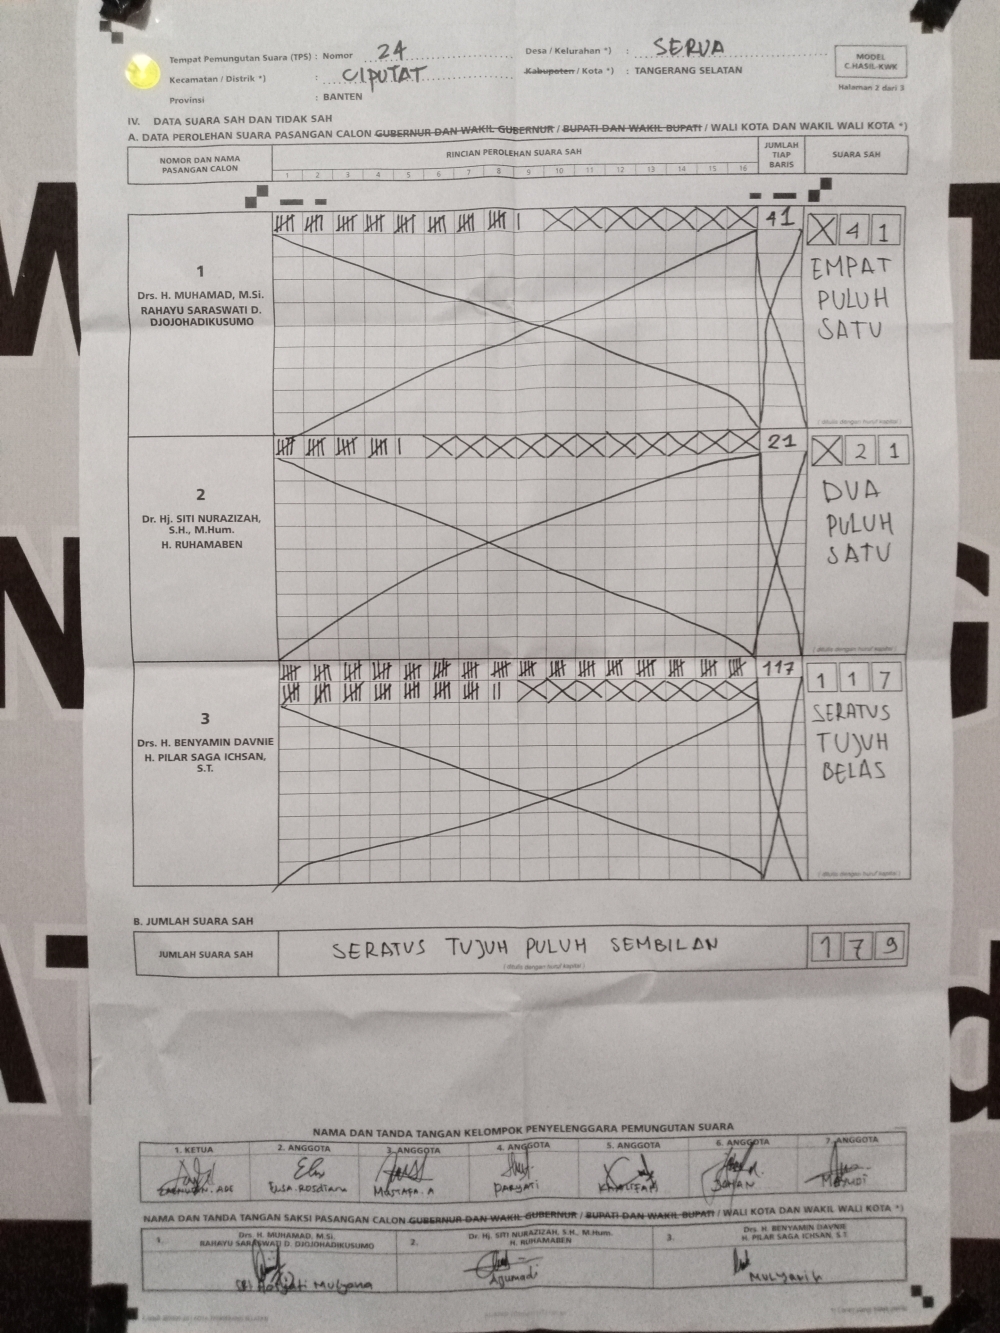 Tempat Pemungutan Suara (TPS) : Nomor 24
Desa / Kelurahan *) : SERUA
MODEL
C.HASIL-KWK
Kecamatan / Distrik *) : CIPUTAT
Kabupaten / Kota *) : TANGERANG SELATAN
Halaman 2 dari 3
Provinsi : BANTEN
IV. DATA SUARA SAH DAN TIDAK SAH
A. DATA PEROLEHAN SUARA PASANGAN CALON GUBERNUR DAN WAKIL GUBERNUR / BUPATI DAN WAKIL BUPATI / WALI KOTA DAN WAKIL WALI KOTA *)
NOMOR DAN NAMA
PASANGAN CALON
RINCIAN PEROLEHAN SUARA SAH
JUMLAH
TIAP
BARIS
SUARA SAH
1 2 3 4 5 6 7 8 9 10 11 12 13 14 15 16
1
Drs. H. MUHAMAD, M.Si.
RAHAYU SARASWATI D.
DJOJOHADIKUSUMO
41
X 4 1
EMPAT
PULUH
SATU
( ditulis dengan huruf kapital )
2
Dr. Hj. SITI NURAZIZAH,
S.H., M.Hum.
H. RUHAMABEN
21
X 2 1
DUA
PULUH
SATU
( ditulis dengan huruf kapital )
3
Drs. H. BENYAMIN DAVNIE
H. PILAR SAGA ICHSAN,
S.T.
117
1 1 7
SERATUS
TUJUH
BELAS
( ditulis dengan huruf kapital )
B. JUMLAH SUARA SAH
JUMLAH SUARA SAH
SERATUS TUJUH PULUH SEMBILAN
1 7 9
( ditulis dengan huruf kapital )
NAMA DAN TANDA TANGAN KELOMPOK PENYELENGGARA PEMUNGUTAN SUARA
1. KETUA 2. ANGGOTA 3. ANGGOTA 4. ANGGOTA 5. ANGGOTA 6. ANGGOTA 7. ANGGOTA
Elsa Rosdiana MUSTAFA. A PARYATI
NAMA DAN TANDA TANGAN SAKSI PASANGAN CALON GUBERNUR DAN WAKIL GUBERNUR / BUPATI DAN WAKIL BUPATI / WALI KOTA DAN WAKIL WALI KOTA *)
1. Drs. H. MUHAMAD, M.Si.
RAHAYU SARASWATI D. DJOJOHADIKUSUMO
2. Dr. Hj. SITI NURAZIZAH, S.H., M.Hum.
H. RUHAMABEN
3. Drs. H. BENYAMIN DAVNIE
H. PILAR SAGA ICHSAN, S.T.
Mulyana
Agumadi